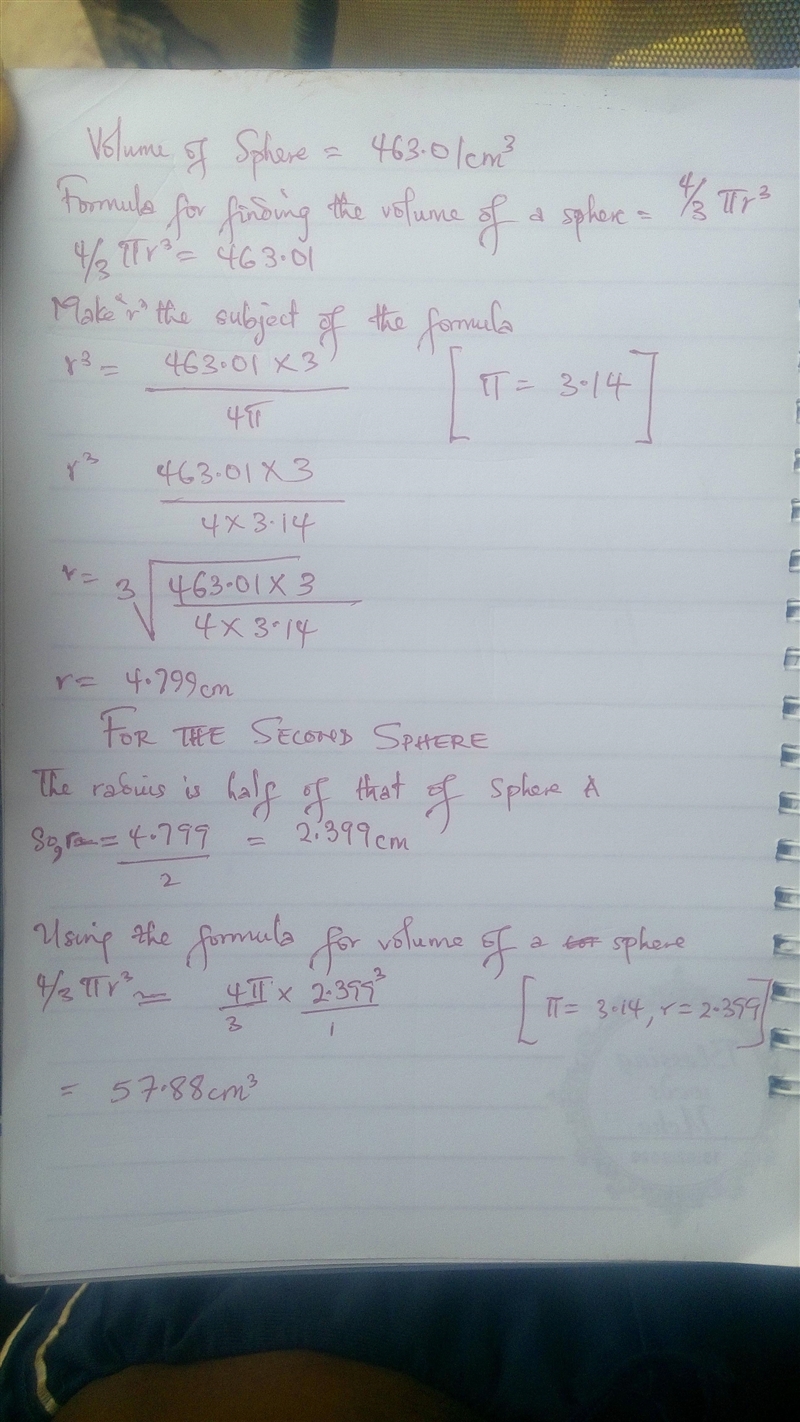 Volume of Sphere = 463.01cm³
Formula for finding the volume of a sphere = 4/3 πr³
4/3 πr³ = 463.01
Make "r" the subject of the formula
r³ = 463.01 × 3 / 4π [π = 3.14]
r³ 463.01 × 3 / 4 × 3.14
r = 3√463.01 × 3 / 4 × 3.14
r = 4.799cm
FOR THE SECOND SPHERE
The radius is half of that of sphere A
So, r = 4.799 / 2 = 2.399cm
Using the formula for volume of a sphere
4/3 πr³ = 4π/3 × 2.399³/1 [π = 3.14, r = 2.399]
= 57.88cm³